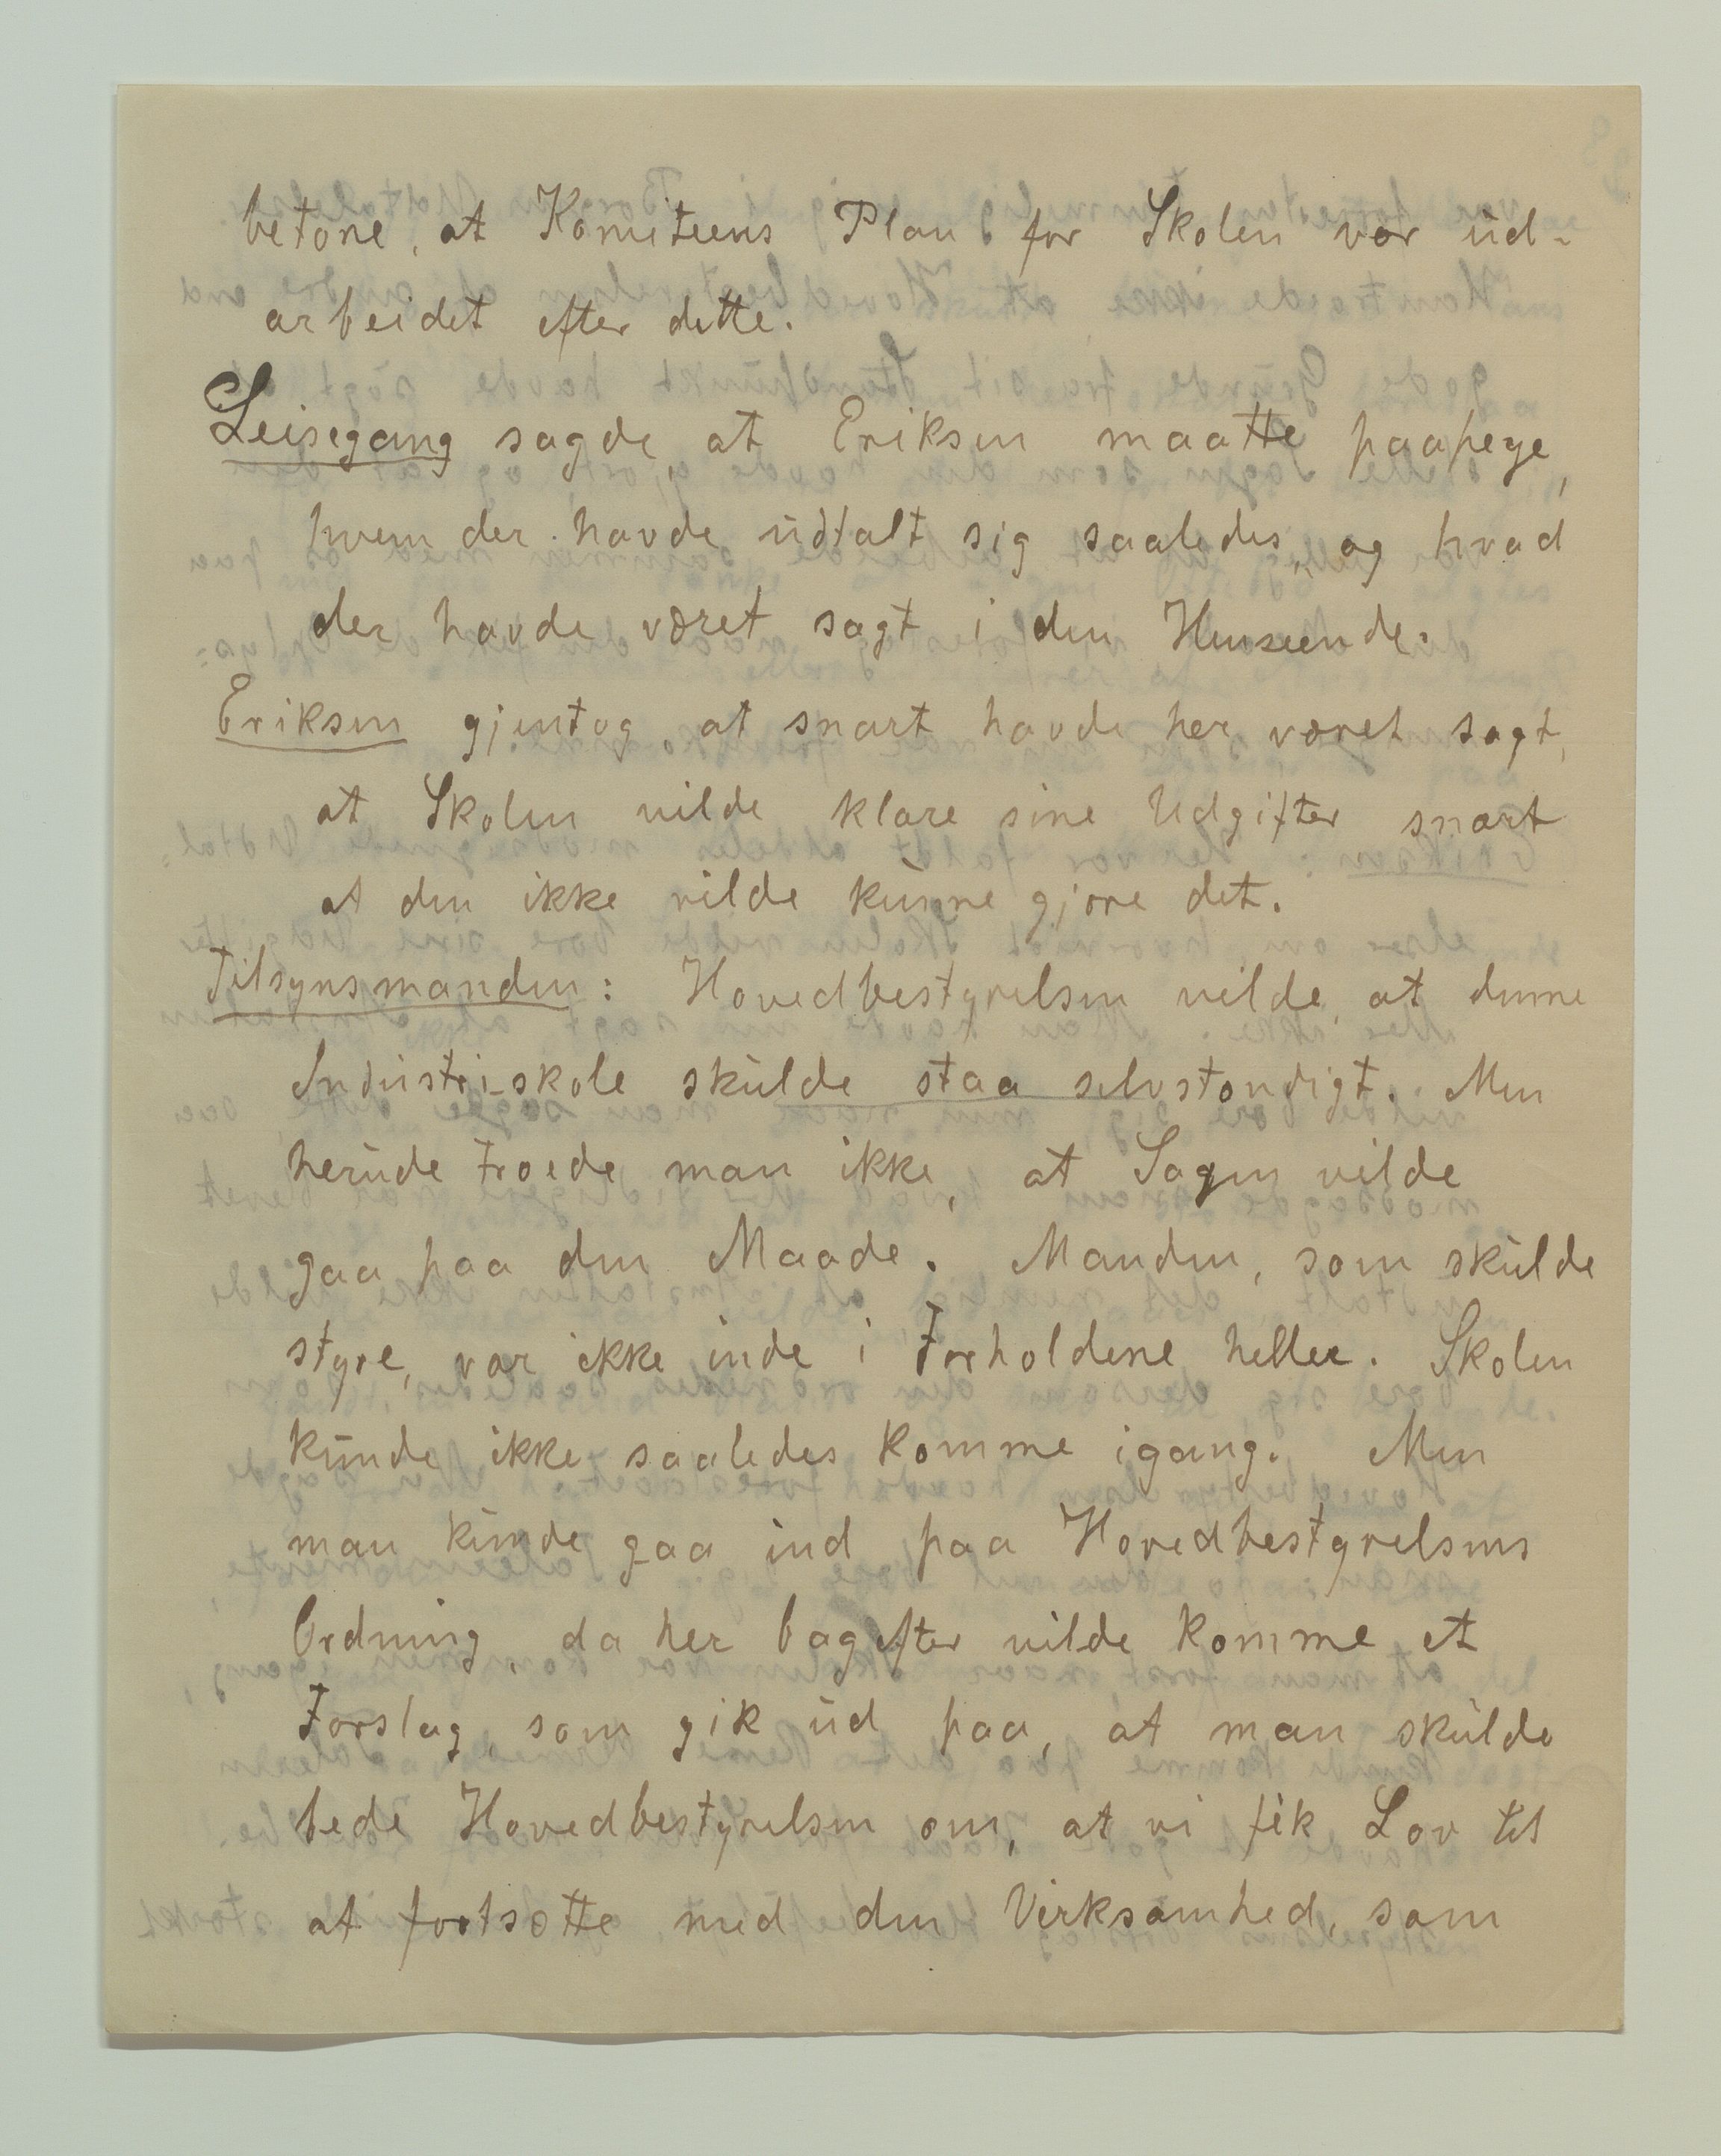 betone, at Komiteens Plan for Skolen var ud-
arbeidet efter dette.
Leisegang sagde at Eriksen maatte paapege,
hvem der havde udtalt sig saaledes, og hvad
der havde været sagt i den Henseende.
Eriksen gjentog, at snart havde her været sagt,
at Skolen vilde klare sine Udgifter snart
at den ikke vilde kunne gjøre det.
Tilsynsmanden: Hovedbestyrelsen vilde, at denne
Industri-skole skulde staa selvstændigt. Men
herude troede man ikke, at Sagen vilde
gaa paa den Maade. Manden, som skulde
styre, var ikke inde i Forholdene heller. Skolen
kunde ikke saaledes komme igang. Men
man kunde gaa ind paa Hovedbestyrelsens
Ordning, da her bagefter vilde komme et
Forslag, som gik ud paa, at man skulde
bede Hovedbestyrelsen om, at vi fik Lov til
at fortsætte med den Virksomhed, som